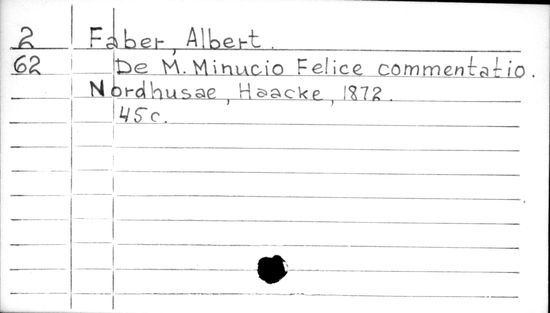 2 Faber, Albert.
62 De M. Minucio Felice commentatio.
Nordhusae, Haacke, 1872.
45 c.